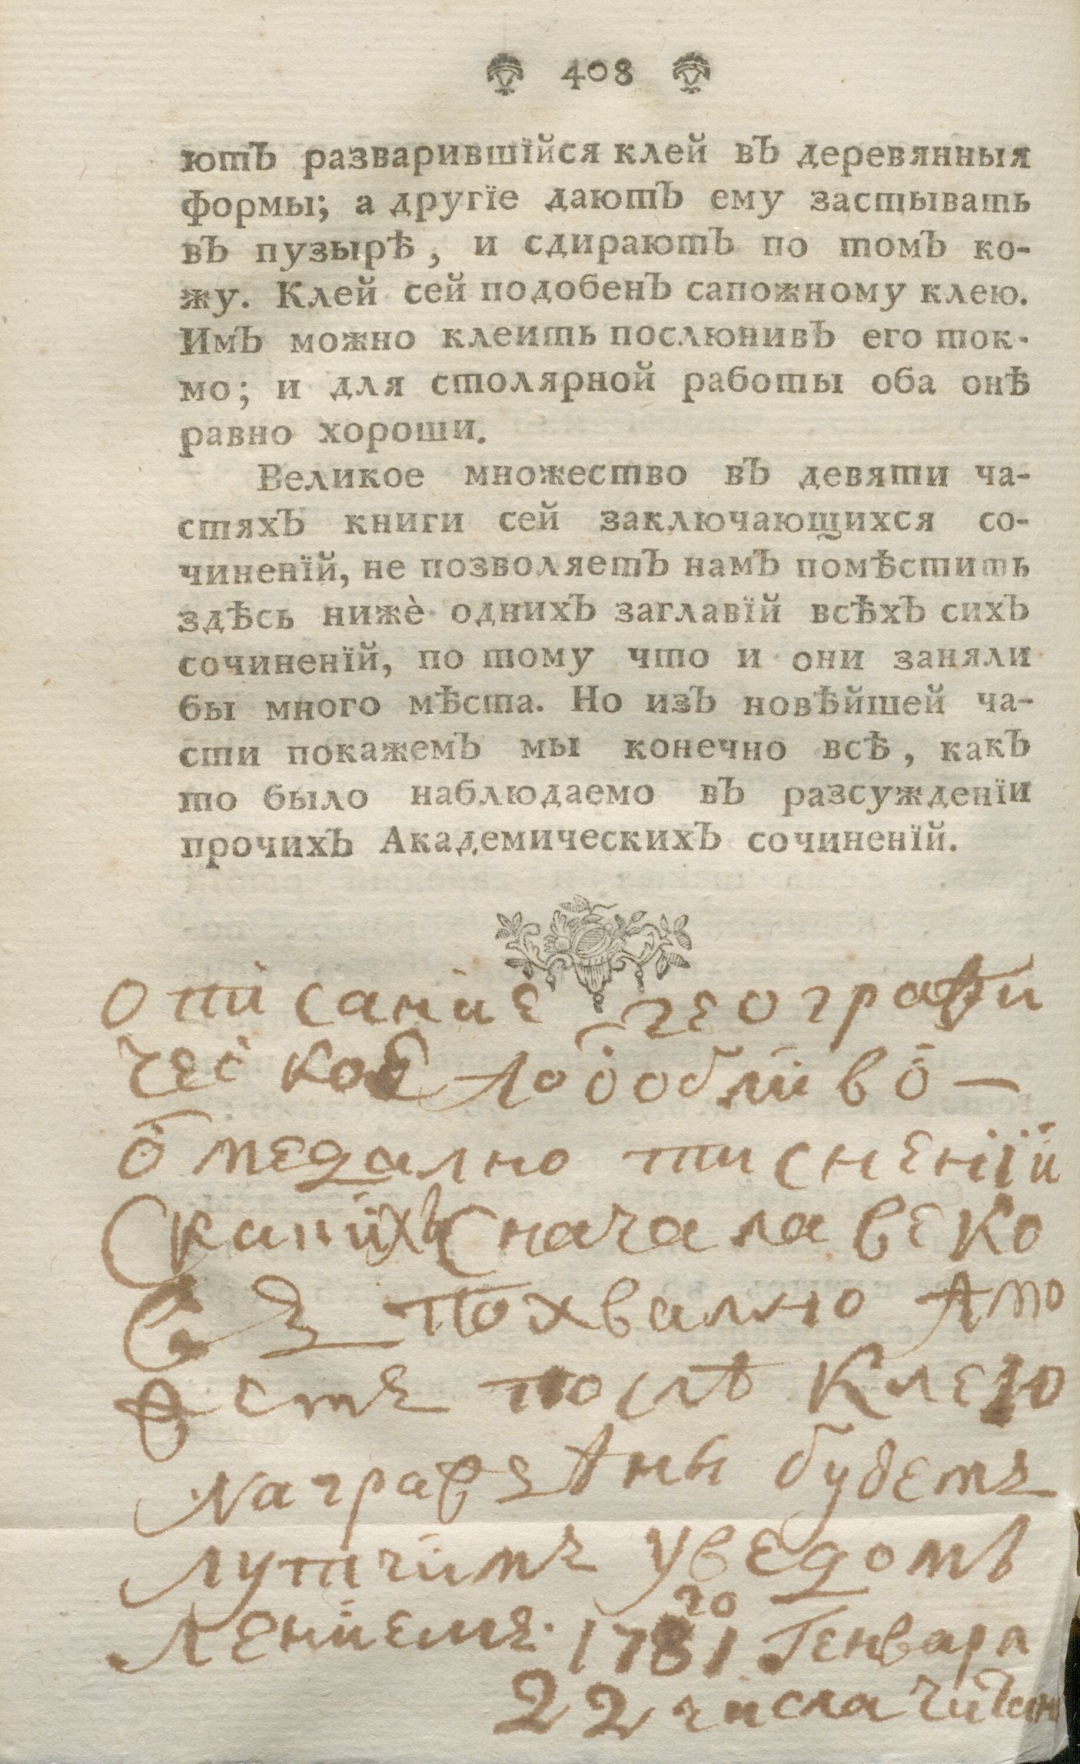 408
ютъ разварившїйся клей въ деревянныя
формы; а другїе даютъ ему застывать
въ пузырѣ, и сдираютъ по томъ ко-
жу. Клей сей подобенъ сапожному клею.
Имъ можно клеить послюнивъ его ток-
мо; и для столярной работы оба онѣ
равно хороши.
Великое множество въ девяти ча-
стяхъ книги сей заключающихся со-
чиненїй, не позволяетъ намъ помѣстить
здѣсь нижѐ однихъ заглавїй всѣхъ сихъ
сочиненїй, по тому что и они заняли
бы много мѣста. Но изъ новѣйшей ча-
сти покажемъ мы конечно всѣ, какъ
то было наблюдаемо въ разсужденїи
прочихъ Академическихъ сочиненїй.
описание географи
ческое
о медално тиснений
сначала веко
похвално
послѣ клею
будетъ
лутчимъ уведом
лениемъ. 1781 Генваря
22 числа